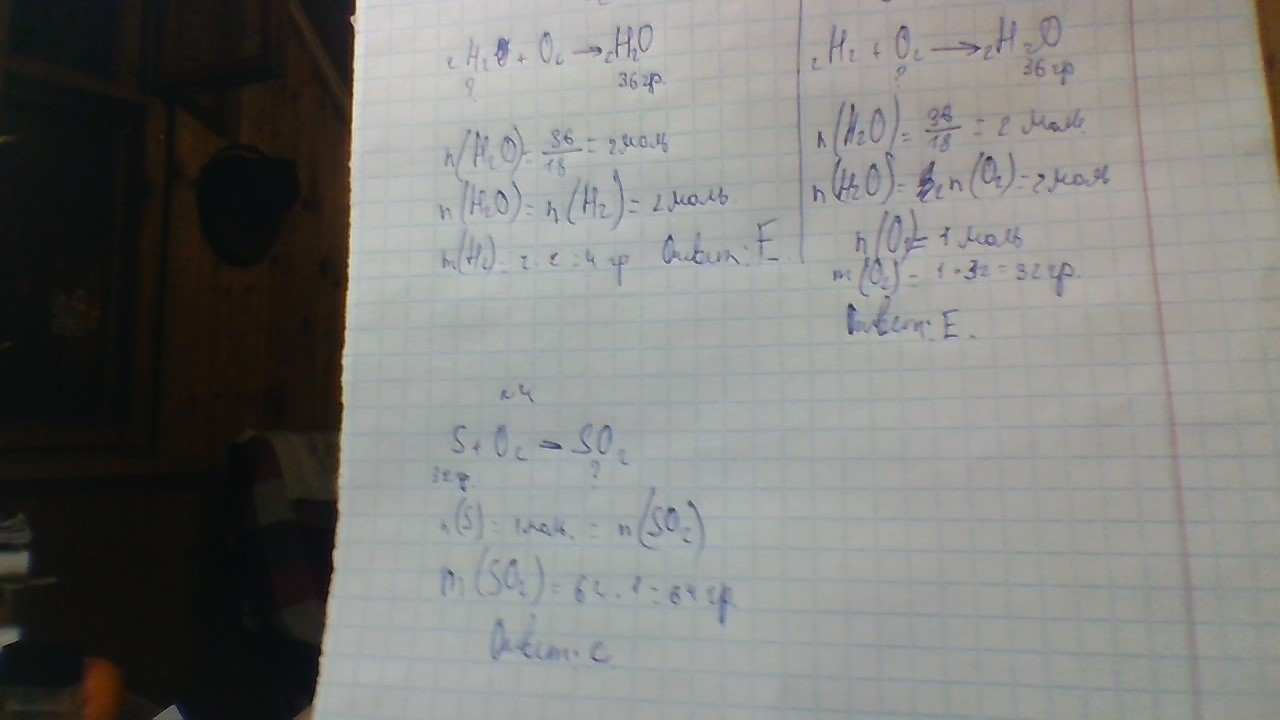 2H2 + O2 → 2H2O
? 36 гр.
n(H2O) = 36/18 = 2 моль
n(H2O) = n(H2) = 2 моль.
m(H2) = 2 · 2 = 4 гр Ответ: E.
2H2 + O2 → 2H2O
? 36 гр
n(H2O) = 36/18 = 2 моль
n(H2O) = 2n(O2) = 2 моль
n(O2) = 1 моль
m(O2) = 1 · 32 = 32 гр.
Ответ: E.
№4
S + O2 = SO2
32 гр. ?
n(S) = 1 моль. = n(SO2)
m(SO2) = 64 · 1 = 64 гр.
Ответ: C